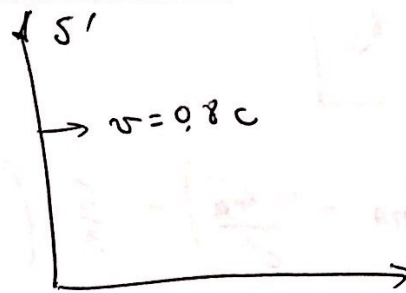 S'
v = 0,8 c